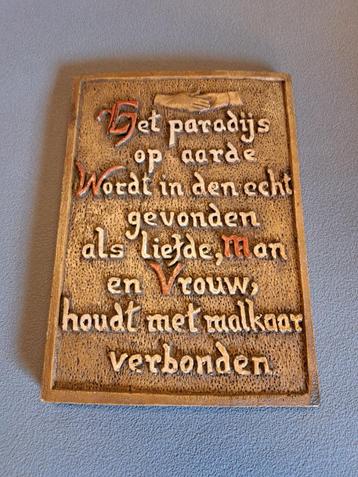 Het paradijs
op aarde
Wordt in den echt
gevonden
als liefde, Man
en Vrouw,
houdt met malkaar
verbonden